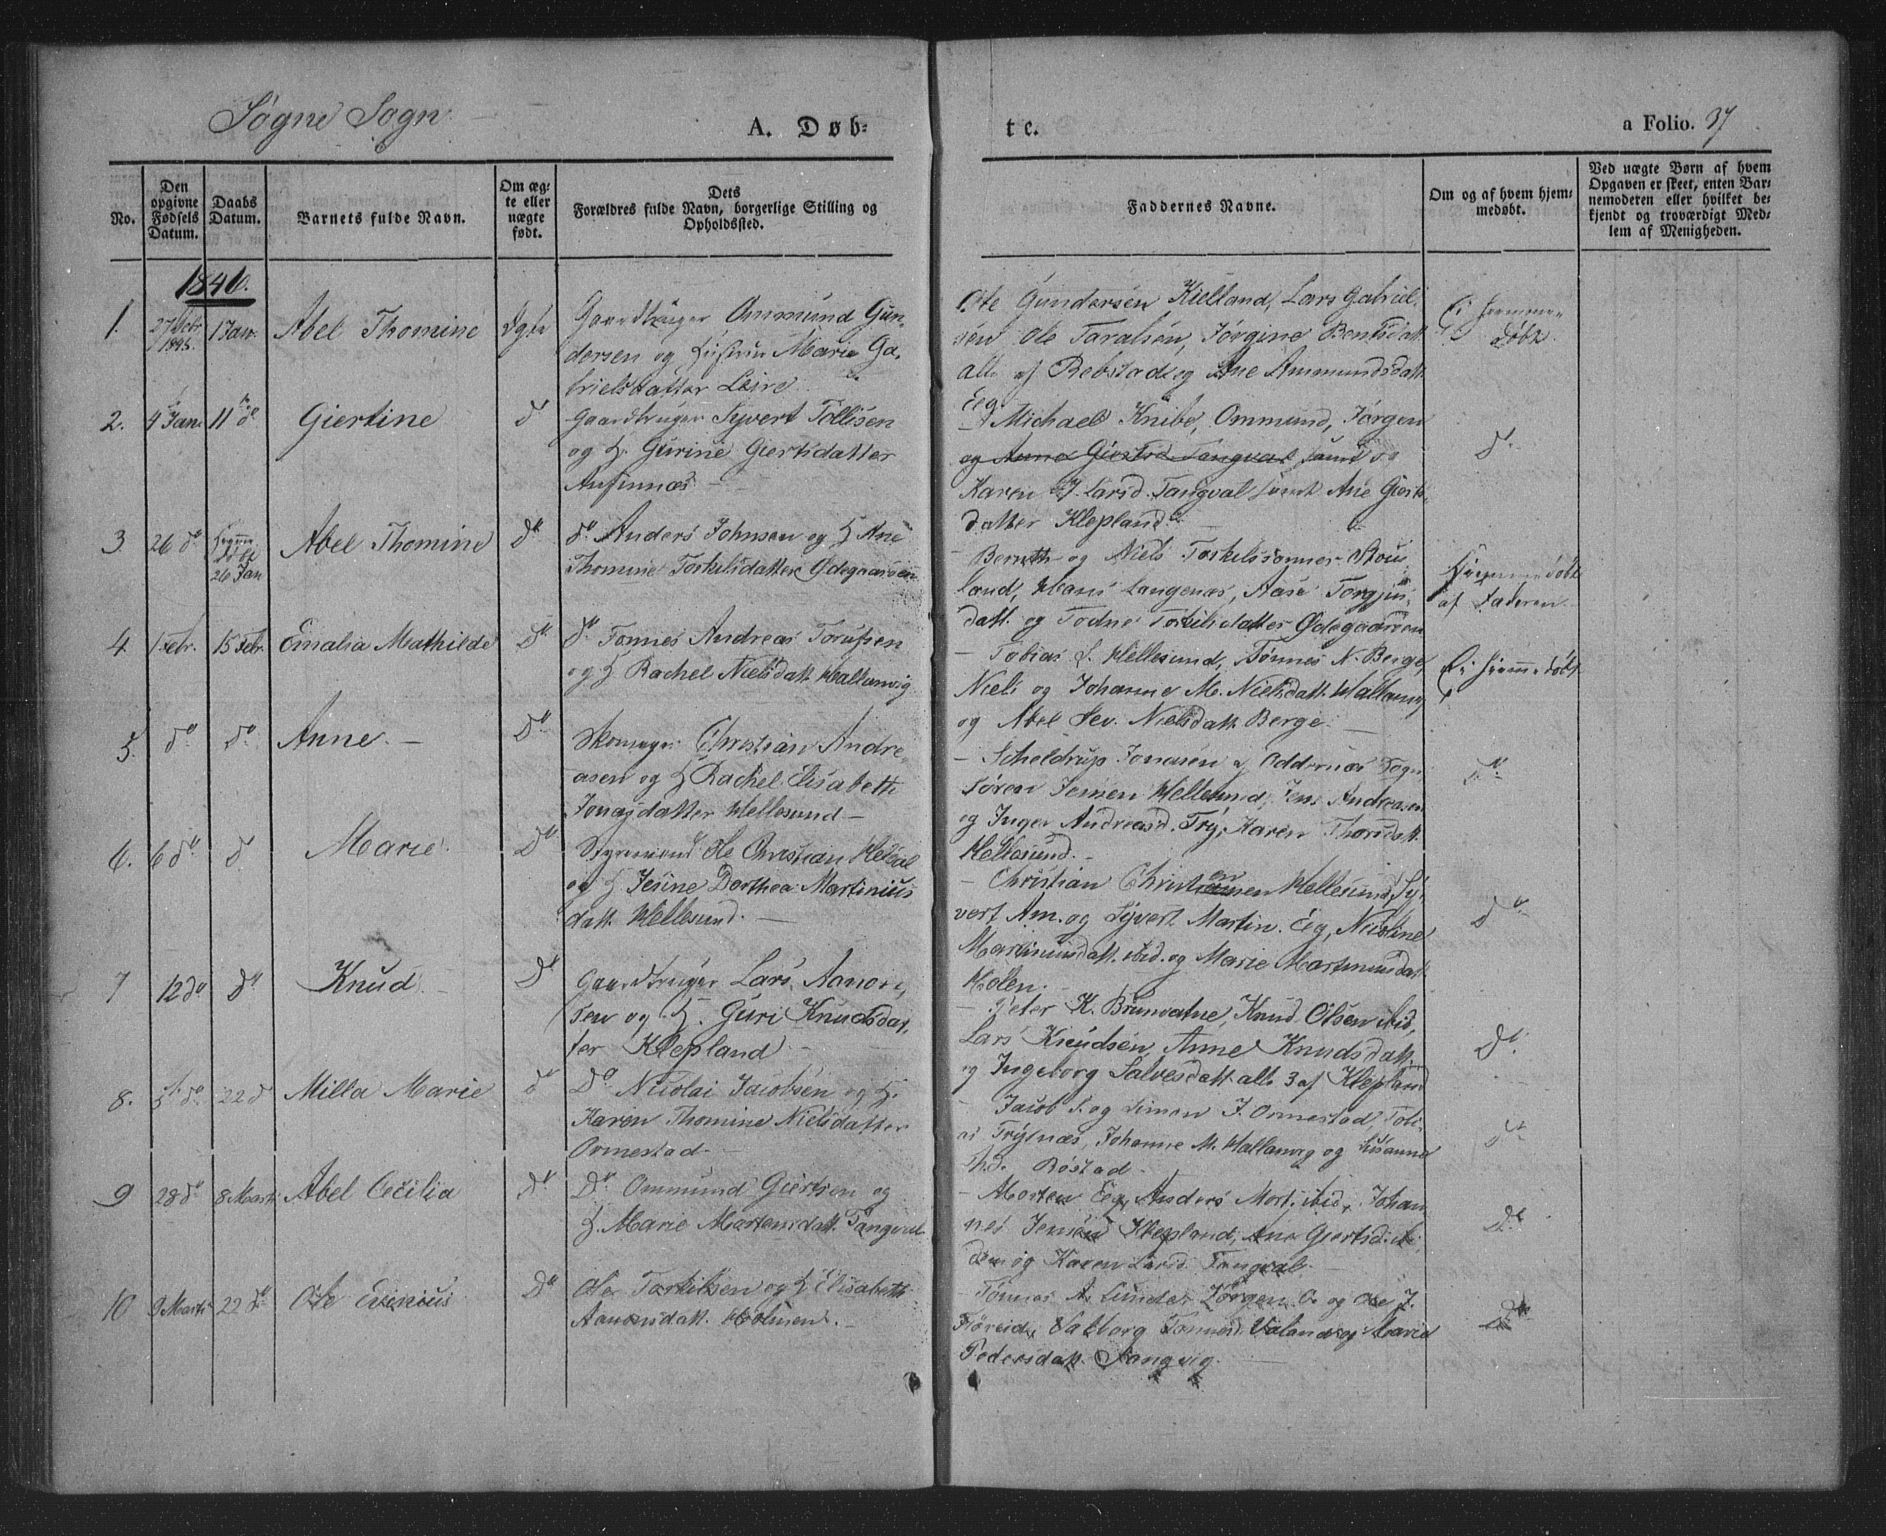 Søgne Sogn
A. Døb-
te.
a Folio. 37
No.
Den opgivne Fødsels Datum.
Daabs Datum.
Barnets fulde Navn.
Om ægte eller nægte født.
Dets
Forældres fulde Navn, borgerlige Stilling og
Opholdssted.
Faddernes Navne.
Om og af hvem hjemmedøbt.
Ved uægte Børn af hvem
Opgaven er skeet, enten Bar-
nemoderen eller hvilket be-
kjendt og troværdigt Med-
lem af Menigheden.
1846.
1. 27 1845. 1 Jan. Abel Thomine Ægte
Gaardbruger Ommund Gun-
dersen og Hustru Marie Ga-
brielsdatter Leire
Ole Gundersen Kielland, Lars Gabriel-
sen Ole Taralsen, Jørgine Berntsdatt
alle af Rebstad og Ane Ammundsdatt
Eg.
Ei hjemme-
døbt.
2. 4 Jan. 11 do Giertine do
Gaardbruger Syvert Tollisen
og H. Gurine Giertsdatter
Ansinnæs
- Michael Knibe, Ommund, Jørgen
og Anna Giertsd. Tangval samt og
Karen J. Larsd. Tangval samt Ane Gierts-
datter Klepland.
do
3 26 do Hjemme døbt 26 Jan Abel Thomine do
do Anders Johnsen og H Ane
Thomine Torkelsdatter Ødegaarden
- Bernth og Niels Torkelssønner
land, Hans Langenæs, Aase Torgjus-
datt. og Todne Torkilsdatter Ødegaarden
Hjemmedøbt
af Faderen
4. 1 Febr. 15 Febr. Emalia Mathilde do
do Tønnes Andreas
og H Rachel Nielsdatt. Hallanvig
- Tobias S. Hellesund, Tønnes N. Berge,
Niels og Johanne M. Nielsdatt. Hallanvig
og Abel Sev. Nielsdatt. Berge
Ei hjemmedøbt
5. do do Anne. - do
Skomager Christian Andre-
asen og H Rachel Elisabeth
Jonasdatter Hellesund -
- Scheldrup Jonasen af Oddernæs Sogn
Søren Jensen Hellesund, Jens Andreasen
og Inger Andreasd. Try, Karen Thorsdatt.
Hellesund. -
do
6. 6 do do Marie. do
Styrmand Ole Christian
og H Jesine Dorthea Martinius
datt Hellesund. -
- Christian Christensen Hellesund, Sy-
vert Am. og Syvert Martin. Eg, Nicoline
Martiniusdatt. ibid. og Marie Martiniusdatt
Holen.
do
7 12 do do Knud do
Gaardbruger Lars Aanon-
sen og H. Guri Knudsdat-
ter Klepland
- Peter K. Brunvatne, Knud Olsen ibid,
Lars Knudsen Anne Knudsdatt.
og Ingeborg Salvesdatt alle 3 af Klepland
do
8. do 22 do Milla Marie do
Do Nicolai Jacobsen og H.
Karen Thomine Nielsdatter
Ormestad. -
- Jacob S. og Simon J. Ormestad, Tobi-
as Trysnæs, Johanne M. Hallanvig og Susanne
Røstad -
do
9 28 do 8 Marts Abel Cecilia do
Do Ommund Giertsen og
H. Marie Mortensdatt. Tangval
- Morten Eg, Anders Mort. ibid, Johan-
nes Jensen Klepland, Ane Giertsd. ibi-
dem og Karen Larsd. Tangval.
do
10 9 Marts 22 do Ole Evinius do
Ole Torkilsen og H Elisabeth
Aanonsdatt. Holmen. -
Tønnes A. Lunde, Jørgen O. og Ole J.
Fløreid, Valborg Tønnesd. Valand og Maria
Pedersdatt. Langvig.
do